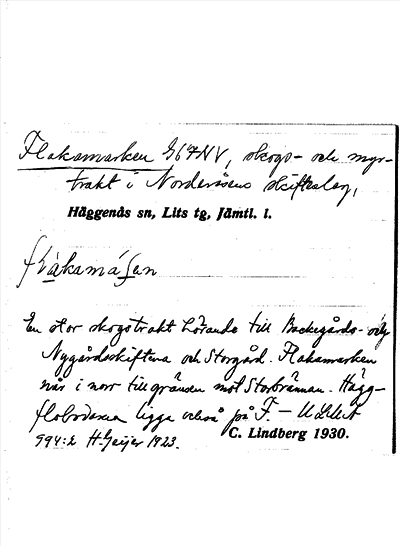 Flakamarken 967NV, skogs- och myr-
trakt i Norderåsens skifteslag,
Häggenås sn, Lits tg, Jämtl. l.
En stor skogstrakt hörande till Backegårds- och
Nygårdsskiftena och Storgård. Flakamarken
når i norr till gränsen mot Storbrännan. Hägg-
flobodarna ligga också på F. —
994:2 H. Geijer 1923.
C. Lindberg 1930.